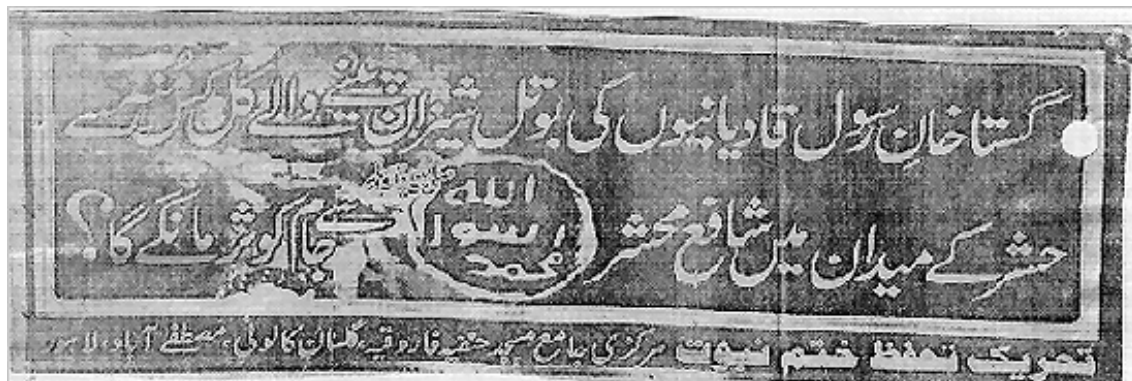 گستاخانِ رسول قادیانیوں کی بوتل شیزان پینے والے کل کس منہ سے
حشر کے میدان میں شافع محشر محمد رسول اللہ ﷺ سے جام کوثر مانگے گا؟
تحریک تحفظ ختم نبوت مرکزی جامع مسجد حنفیہ فاروقیہ، گلستان کالونی، مصطفےٰ آباد، لاہور